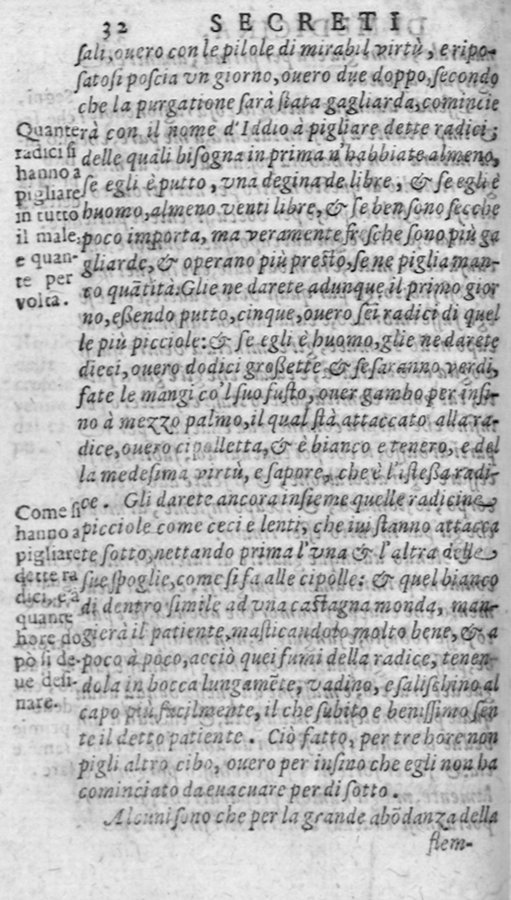 32 SECRETI
sali, ouero con le pilole di mirabil virtù, e ripo-
satosi poscia vn giorno, ouero due doppo, secondo
che la purgatione sarà stata gagliarda, comincie
rà con il nome d'Iddio à pigliare dette radici;
delle quali bisogna in prima n'habbiate almeno,
se egli è putto, vna degina de libre, & se egli è
huomo, almeno venti libre, & se ben sono secche
poco importa, ma veramente fresche sono più ga
gliarde, & operano più presto, se ne piglia man-
co quãtità. Glie ne darete adunque il primo gior
no, essendo putto, cinque, ouero sei radici di quel
le più picciole: & se egli è huomo, glie ne darete
dieci, ouero dodici grossette & se saranno verdi,
fate le mangi co'l suo fusto, ouer gambo per insi-
no à mezzo palmo, il qual stà attaccato alla ra-
dice, ouero cipolletta, & è bianco e tenero, e del
la medesima virtù, e sapore, che è l'istessa radi-
ce. Gli darete ancora insieme quelle radicine
picciole come ceci e lenti, che iui stanno attacca
te sotto, nettando prima l'vna & l'altra delle
sue spoglie, come si fa alle cipolle: & quel bianco
di dentro simile ad vna castagna monda, man-
gierà il patiente, masticandolo molto bene, & a
poco à poco, acciò quei fumi della radice, tenen-
dola in bocca lungamẽte, vadino, e salischino al
capo più facilmente, il che subito e benissimo sen
te il detto patiente. Ciò fatto, per tre hore non
pigli altro cibo, ouero per insino che egli non ha
cominciato da euacuare per di sotto.
Alcuni sono che per la grande abõdanza della
flem-
Quante
radici si
hanno a
pigliare
in tutto
il male,
e quan-
te per
volta.
Come si
hanno a
pigliare
dette ra
dici, e à
quante
hore do
pò si de-
ue desi-
nare.